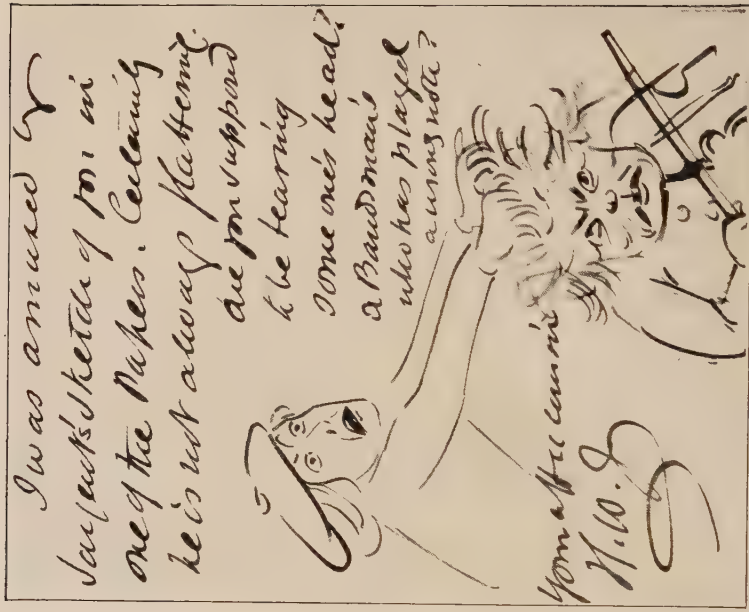 I was amused by
Sargent's sketch of you in
one of the Papers. Certainly
he is not always flattering.
Are you supposed
to be tearing
some one's head?
a Bandman's
who has played
a wrong note?
Your affec cousin
H.W.